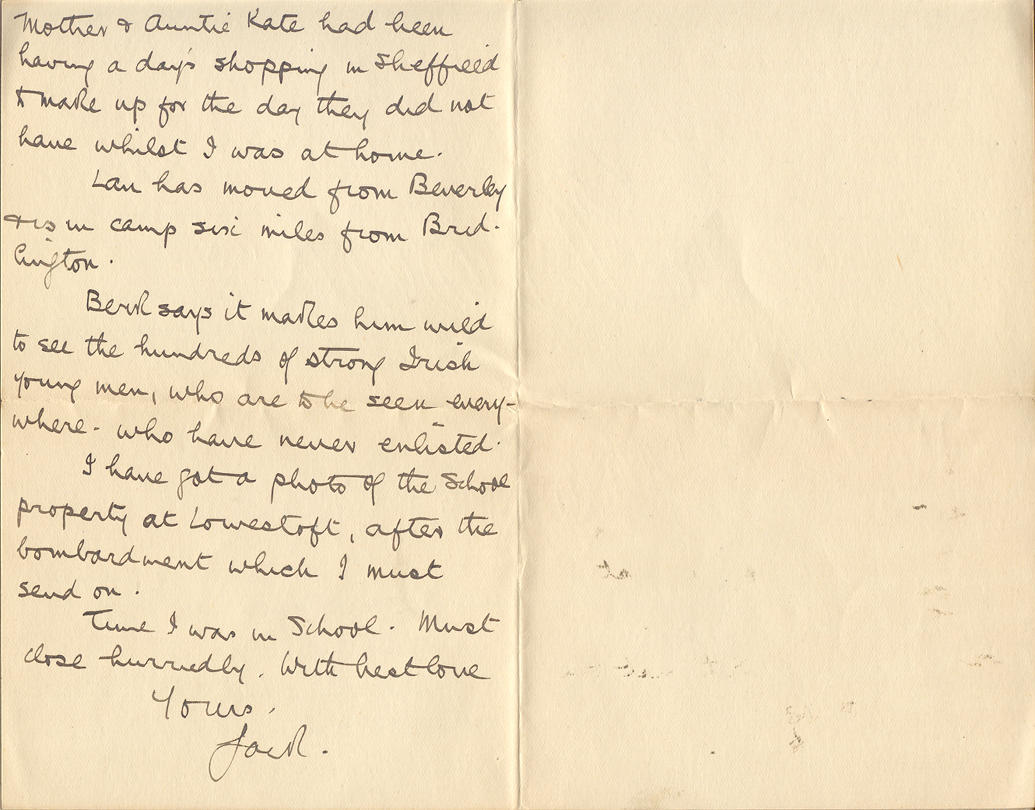 Mother & Auntie Kate had been
having a day's shopping in Sheffield
to make up for the day they did not
have whilst I was at home.
Lan has moved from Beverley
& is in camp six miles from Brid-
lington.
Bert says it makes him wild
to see the hundreds of strong Irish
young men, who are to be seen every-
where - who have never enlisted.
I have got a photo of the School
property at Lowestoft, after the
bombardment which I must
send on.
Time I was in School. Must
close hurriedly. With best love
Yours,
Jack.